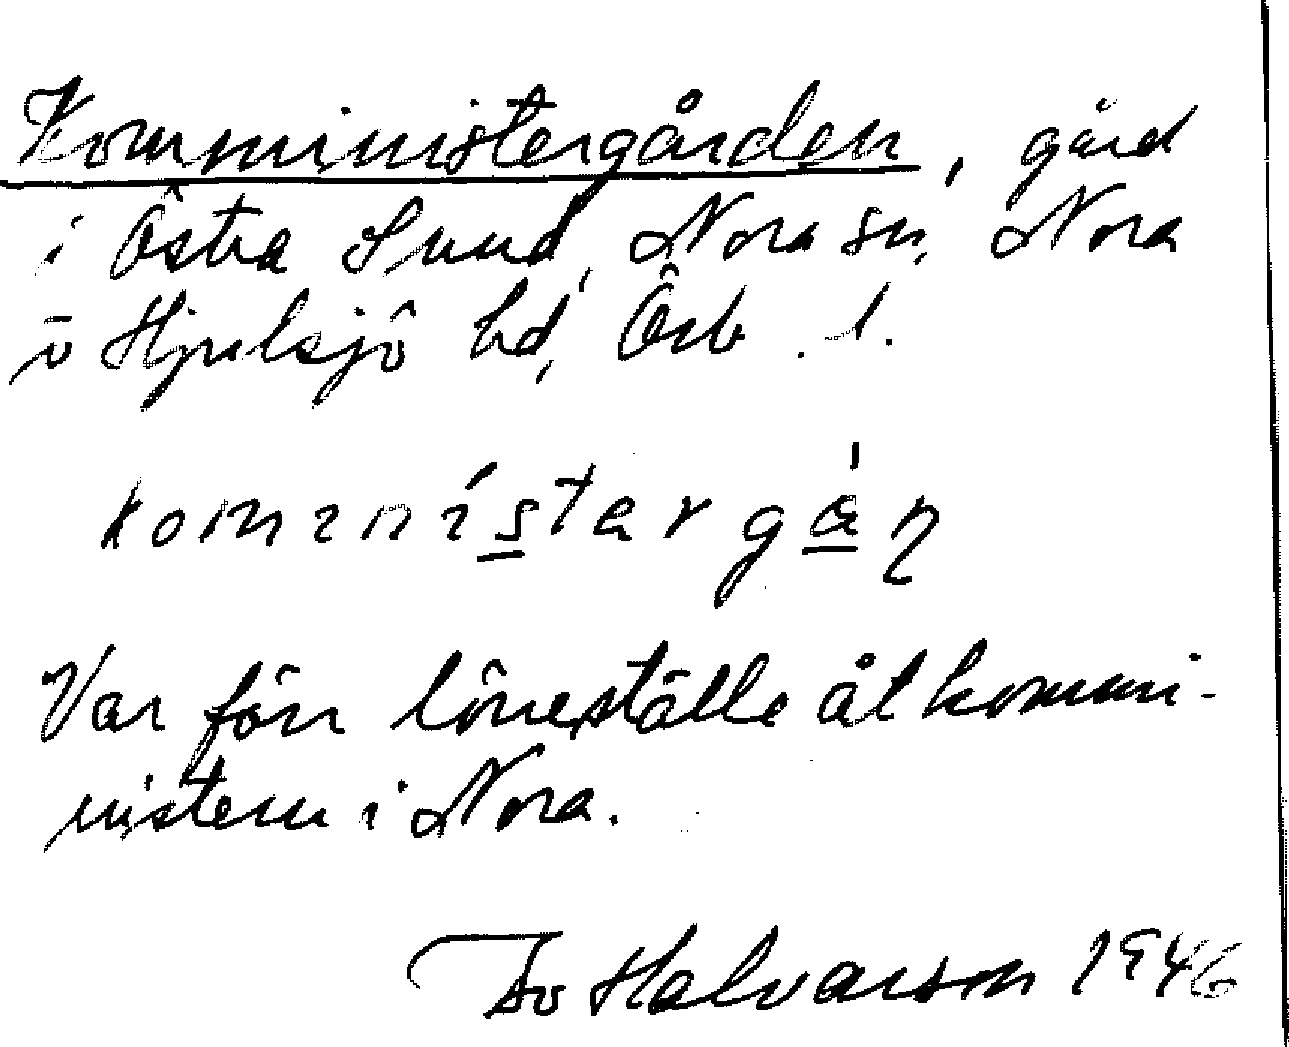 Kommunistergården, gård
i Östra Sund, Nora sn, Nora
o Hjulsjö hd, Örb. l.
kominístergá̀ṇ
Var förr löneställe åt kommi-
nistern i Nora.
Halvarson 1946